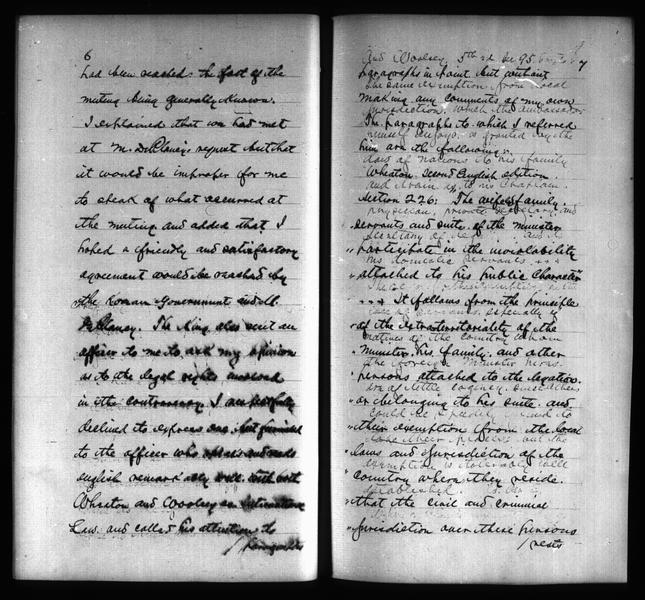 6
had been reached the fact of the
meeting being generally known.
I explained that we had met
at M. De Planey's request but that
it would be improper for me
to speak of what occurred at
the meeting and added that I
hoped a friendly and satisfactory
agreement would be reached by
the Korean Government and M.
De Planey. The King also sent an
officer to me to ask my opinion
as to the legal rights involved
in the controversy. I respectfully
declined to express one, but furnished
to the officer who speaks and reads
english remarkably well with both
Wheaton and Woolsey on International
Law, and called his attention to
/paragraphs
7
and Woolsey 5th ed Sec 95
paragraphs in point but without
the same exemption from local
making any comments of my own
jurisdiction, which the ambassador
The paragraphs to which I referred
himself enjoys, is granted by the
him are the following:
laws of nations to his family
Wheaton second English edition
and train as to his Chaplain
Section 226: The wife, family,
physician, private secretary and
servants and suite of the minister
secretary of
"participate in the inviolability
his domestic servants. x x x
"attached to his public character
"x x x It follows from the principle
case of servants, especially if
"of the exterritoriality of the
natives of the country to whom
"Minister, his family, and other
the foreign Minister
"persons attached to the legation,
"or belonging to his suite, and
could be
"their exemption from the local
"laws and jurisdiction of the
exemption is tolerably well
"country where they reside,
established.
"that the civil and criminal
"jurisdiction over these persons
/rests